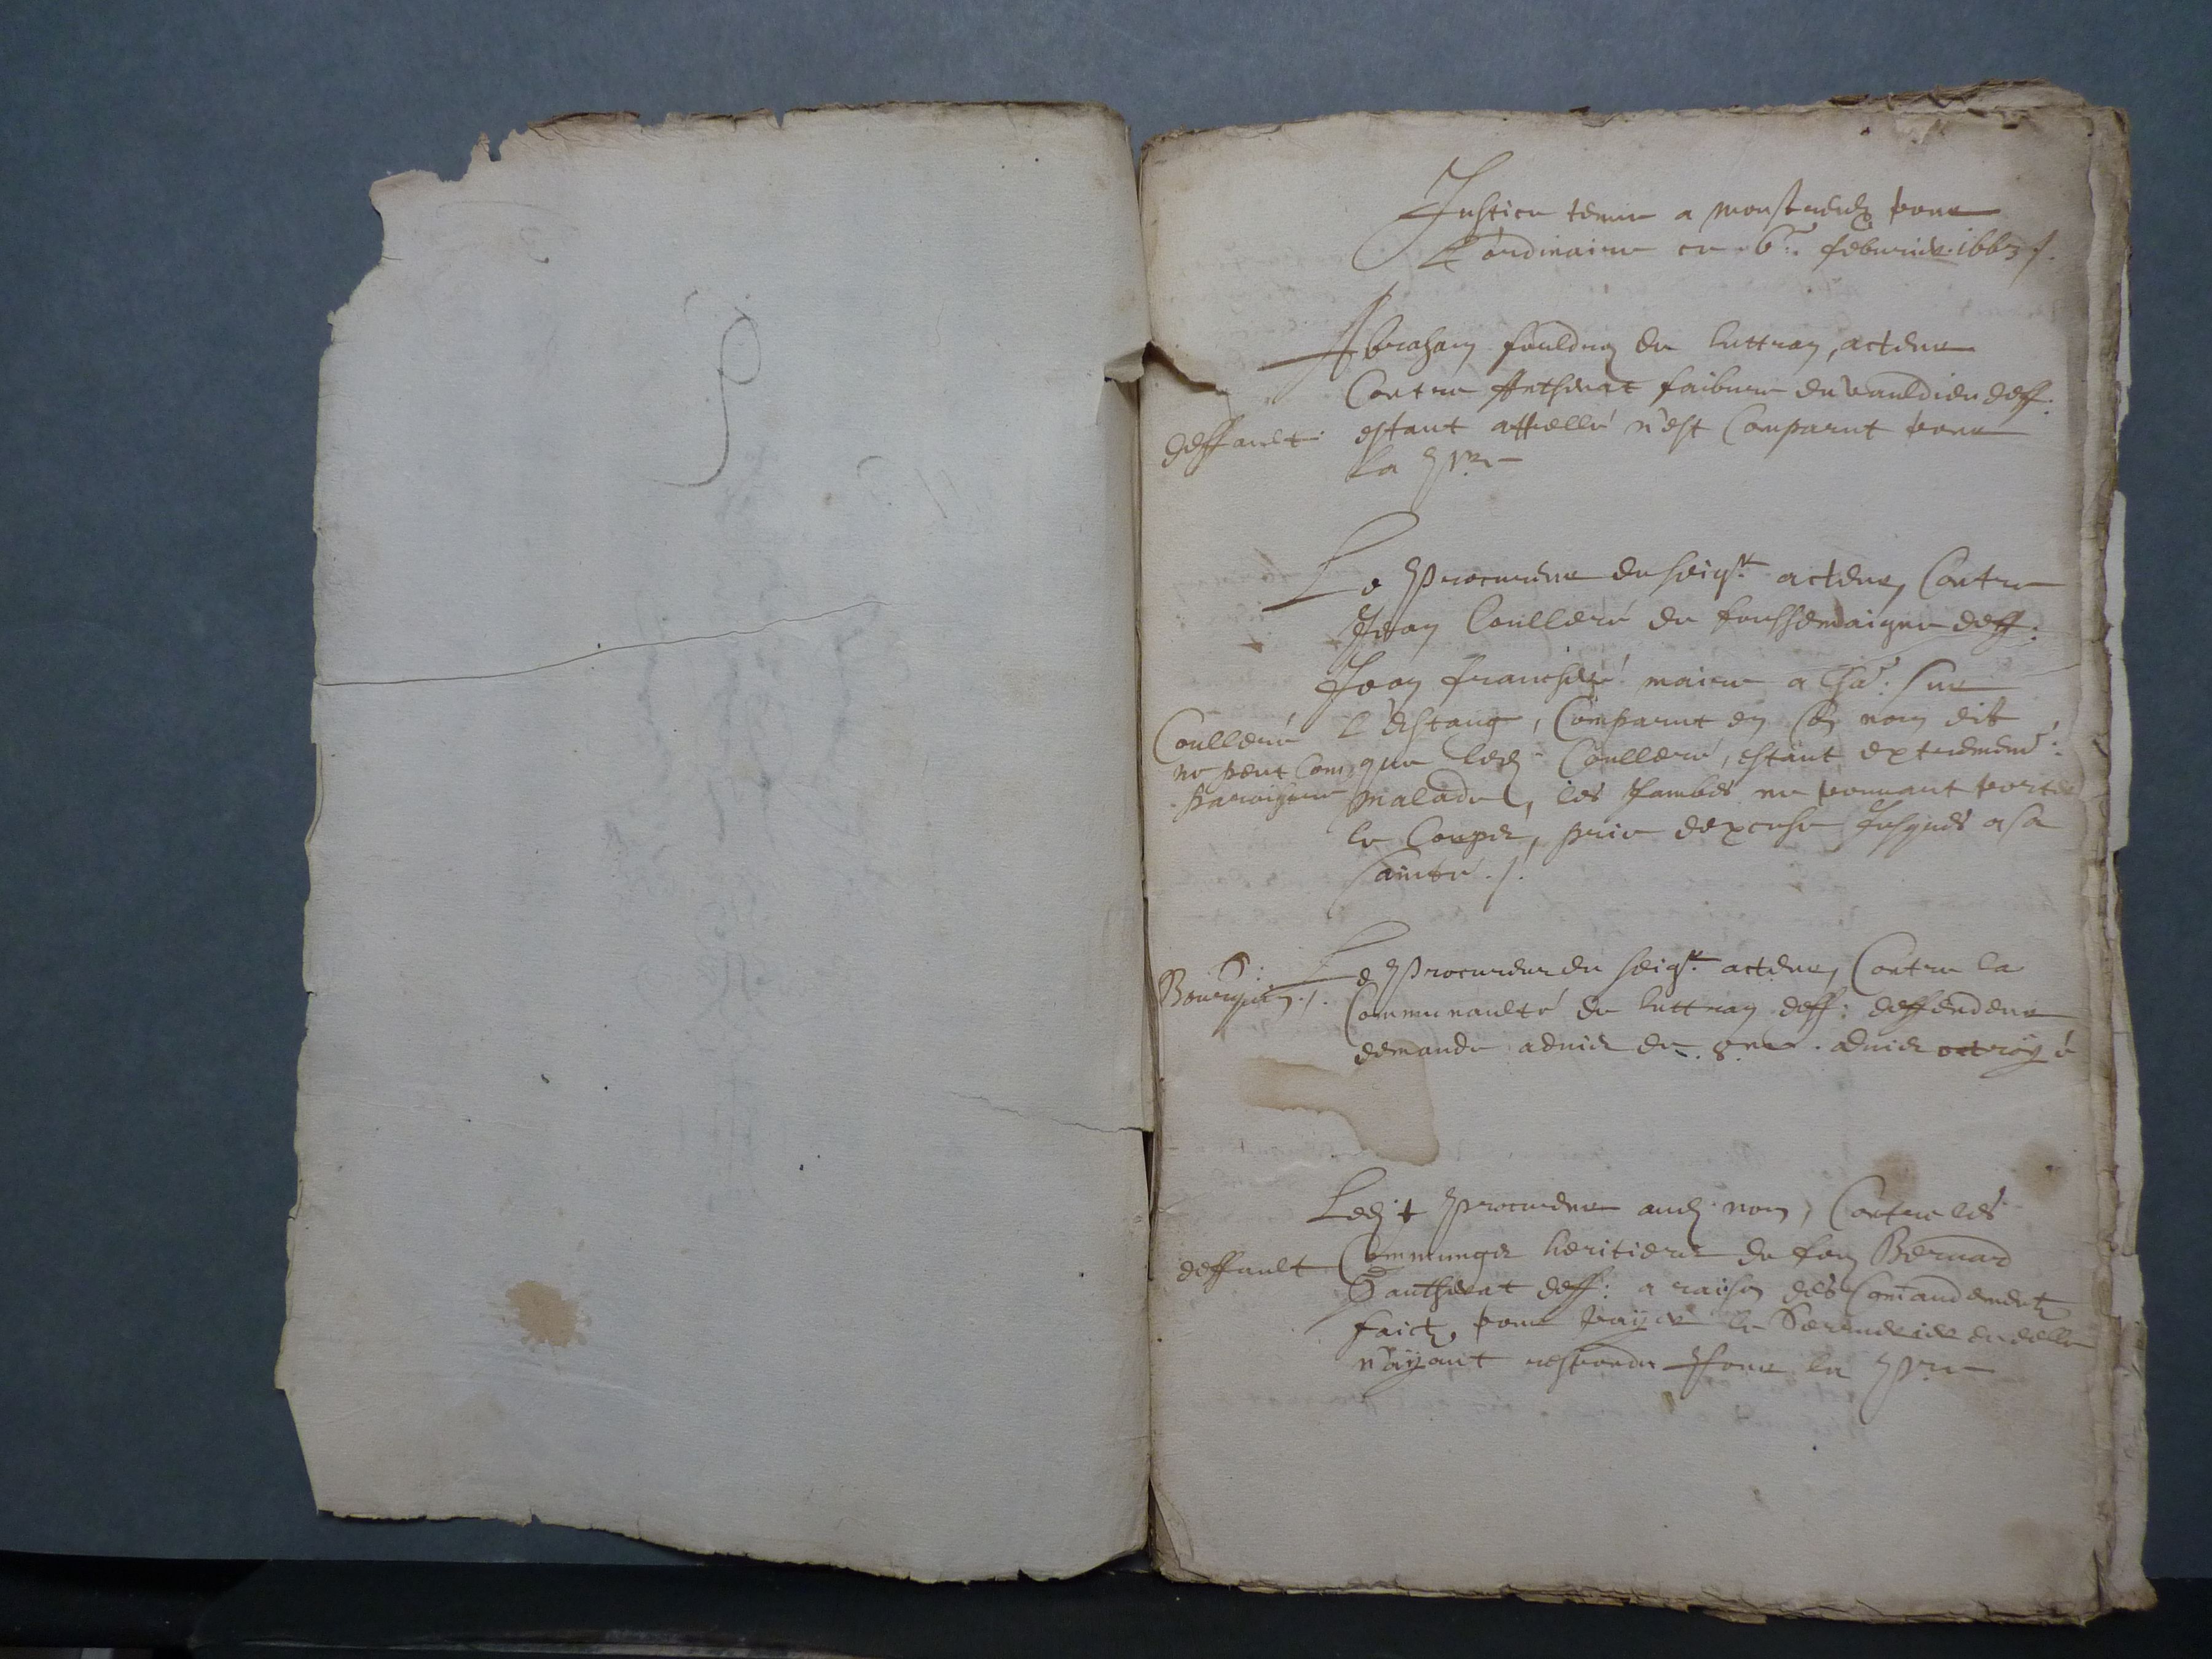 Justice tenue a Monstreux pour
L'ordinaire ce 6e. febvrier 1663 /.
Abraham fouldrey de luttran, acteur
Contre Anthenat faibvre du vauldieu deff:
deffault. estant appellé n'est Comparut pour
la pre
Le Procureur du seigr. acteur, Contre
Jean Coulleré de foussemaigne deff:
Jean franchey maire a Cha: sur
L'estang, Comparut en son nom dit
que led. Coulleré, estant extremem:
malade, les Jambes ne pouvant porter
le Corps, prie dexcuse Jusques a sa
santé ./.
Coulleré
ne peut com-
paroistre
Bourquin ./.
Le Procureur du seigr. acteur, Contre la
Communaulté de luttran deff: deffendeur
demande advis de 8ne. advis octroyé
Ledit Procureur aud. nom, Contre les
deffault Communges heritiers de feu Bernard
Ganthenat deff: a raison des Comandements
faict, pour payer le de delle
n'ayant respondu Pour la pre